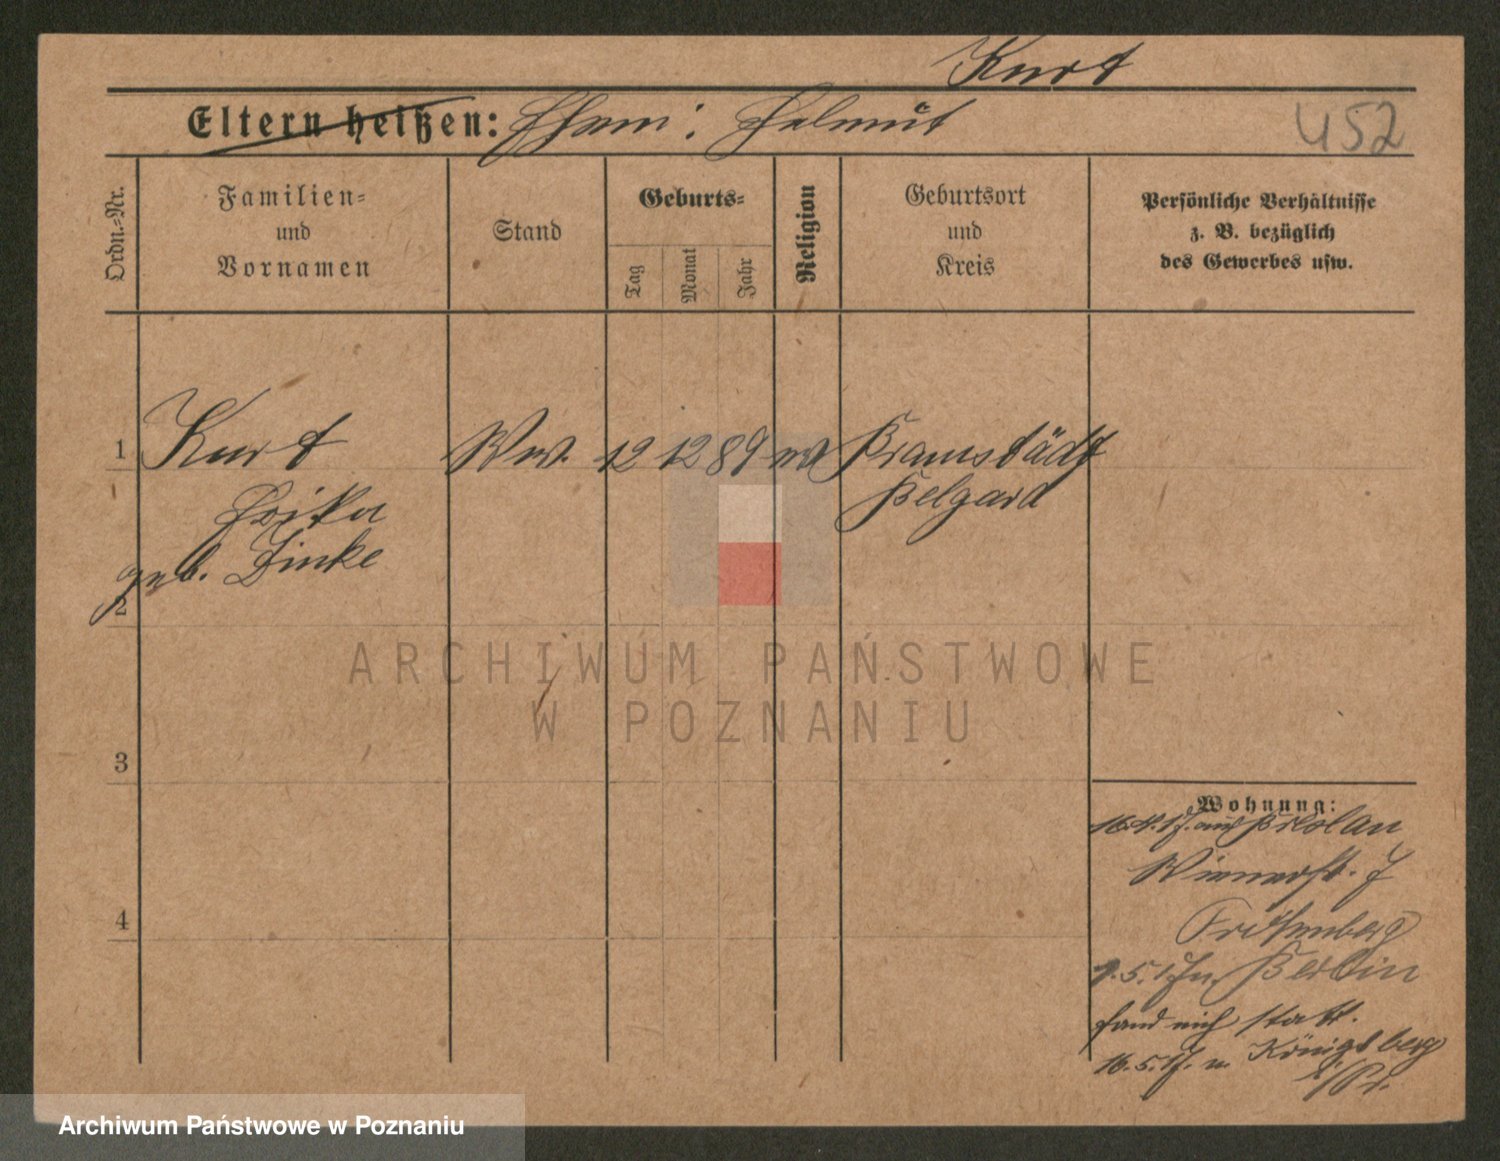 Kurt
Eltern heißen: Ehem: Helmut
452
Ordn.-Nr.
Familien-
und
Vornamen
Stand
Geburts-
Tag
Monat
Jahr
Religion
Geburtsort
und
Kreis
Persönliche Verhältnisse
z. B. bezüglich
des Gewerbes usw.
1 Kurt Ww. 12 12 89 Kramstädt
Erika Belgard
geb. Zinke
2
ARCHIWUM PAŃSTWOWE
W POZNANIU
3
Wohnung:
16.4.17. aus
Wienerstr. 7
4
Berlin
fand nich statt.
16.5.17. n. Königsberg
i/Pr.
Archiwum Państwowe w Poznaniu